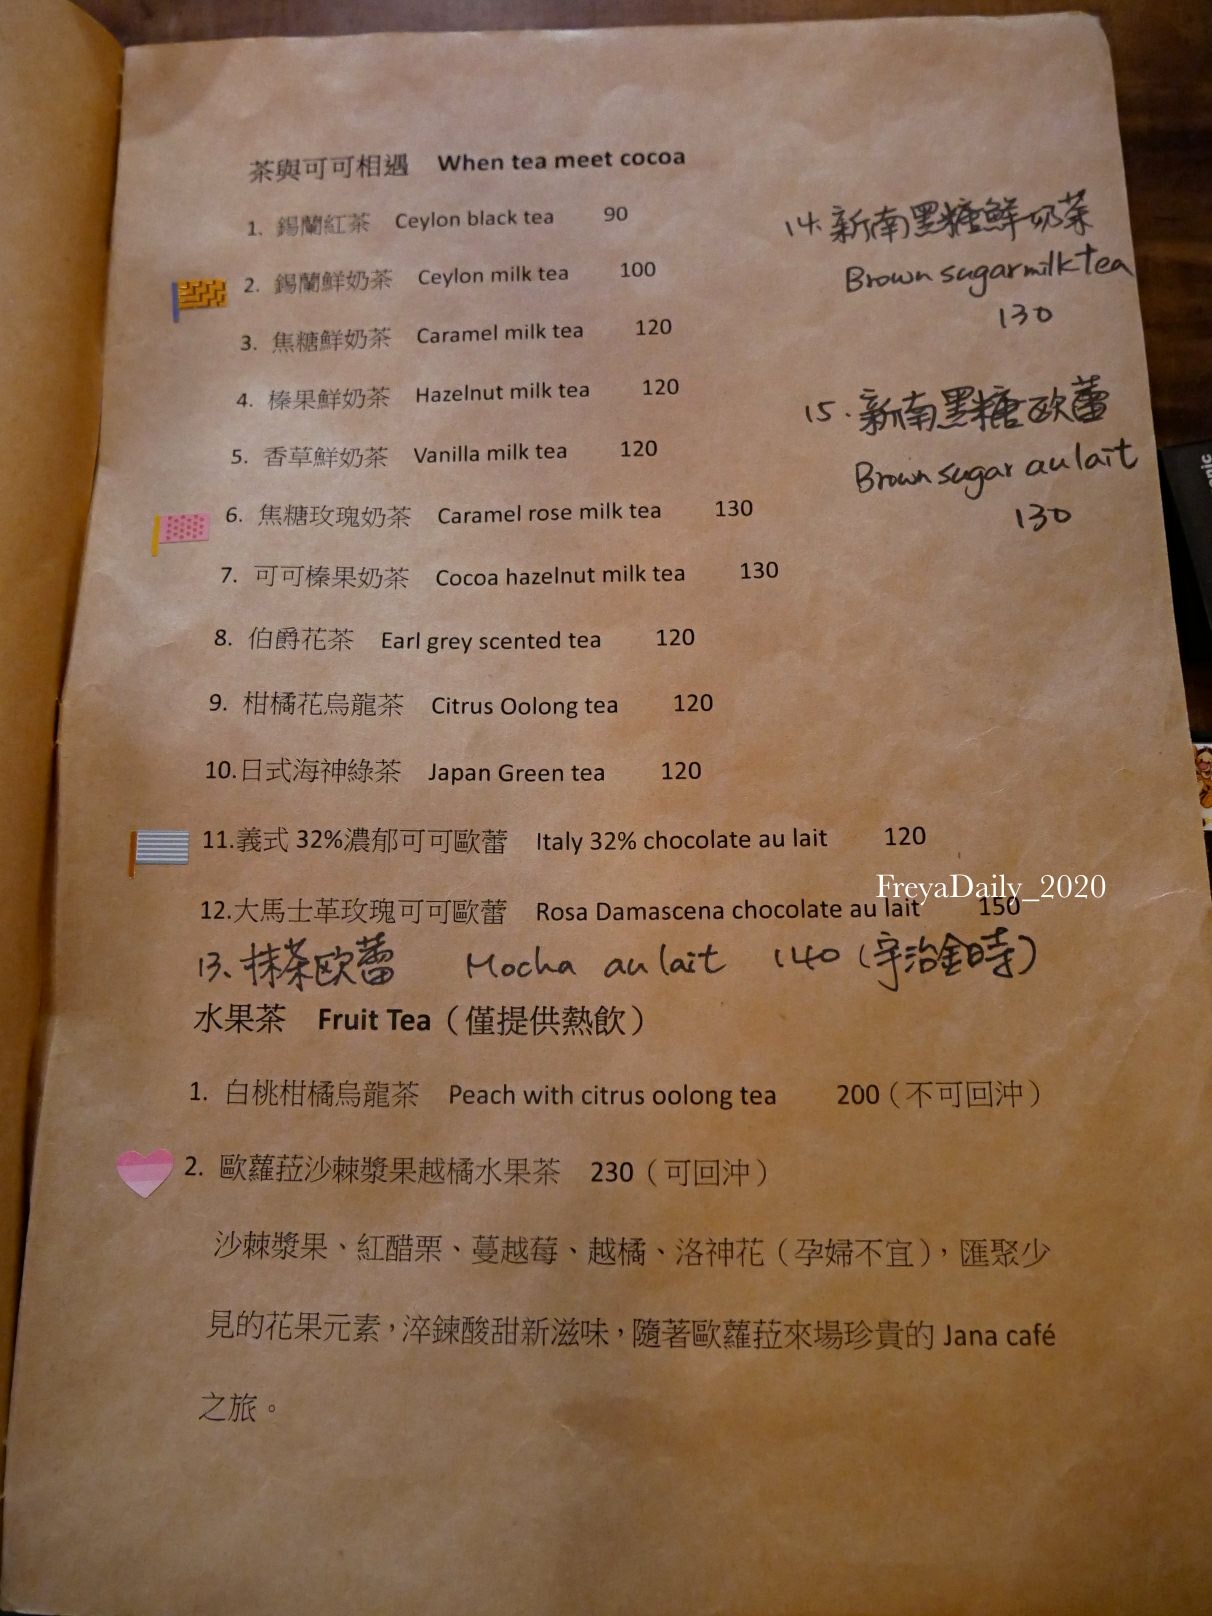 茶與可可相遇 When tea meet cocoa
1. 錫蘭紅茶 Ceylon black tea 90
2. 錫蘭鮮奶茶 Ceylon milk tea 100
3. 焦糖鮮奶茶 Caramel milk tea 120
4. 榛果鮮奶茶 Hazelnut milk tea 120
5. 香草鮮奶茶 Vanilla milk tea 120
6. 焦糖玫瑰奶茶 Caramel rose milk tea 130
7. 可可榛果奶茶 Cocoa hazelnut milk tea 130
8. 伯爵花茶 Earl grey scented tea 120
9. 柑橘花烏龍茶 Citrus Oolong tea 120
10.日式海神綠茶 Japan Green tea 120
11.義式 32%濃郁可可歐蕾 Italy 32% chocolate au lait 120
12.大馬士革玫瑰可可歐蕾 Rosa Damascena chocolate au lait 150
13. 抹茶欧蕾 Mocha au lait 140 (宇治金時)
14. 新南黑糖鮮奶茶
Brown sugar milk tea
130
15. 新南黑糖欧蕾
Brown sugar au lait
130
FreyaDaily_2020
水果茶 Fruit Tea（僅提供熱飲）
1. 白桃柑橘烏龍茶 Peach with citrus oolong tea 200（不可回沖）
2. 歐蘿菈沙棘漿果越橘水果茶 230（可回沖）
沙棘漿果、紅醋栗、蔓越莓、越橘、洛神花（孕婦不宜），匯聚少
見的花果元素，淬鍊酸甜新滋味，隨著歐蘿菈來場珍貴的 Jana café
之旅。